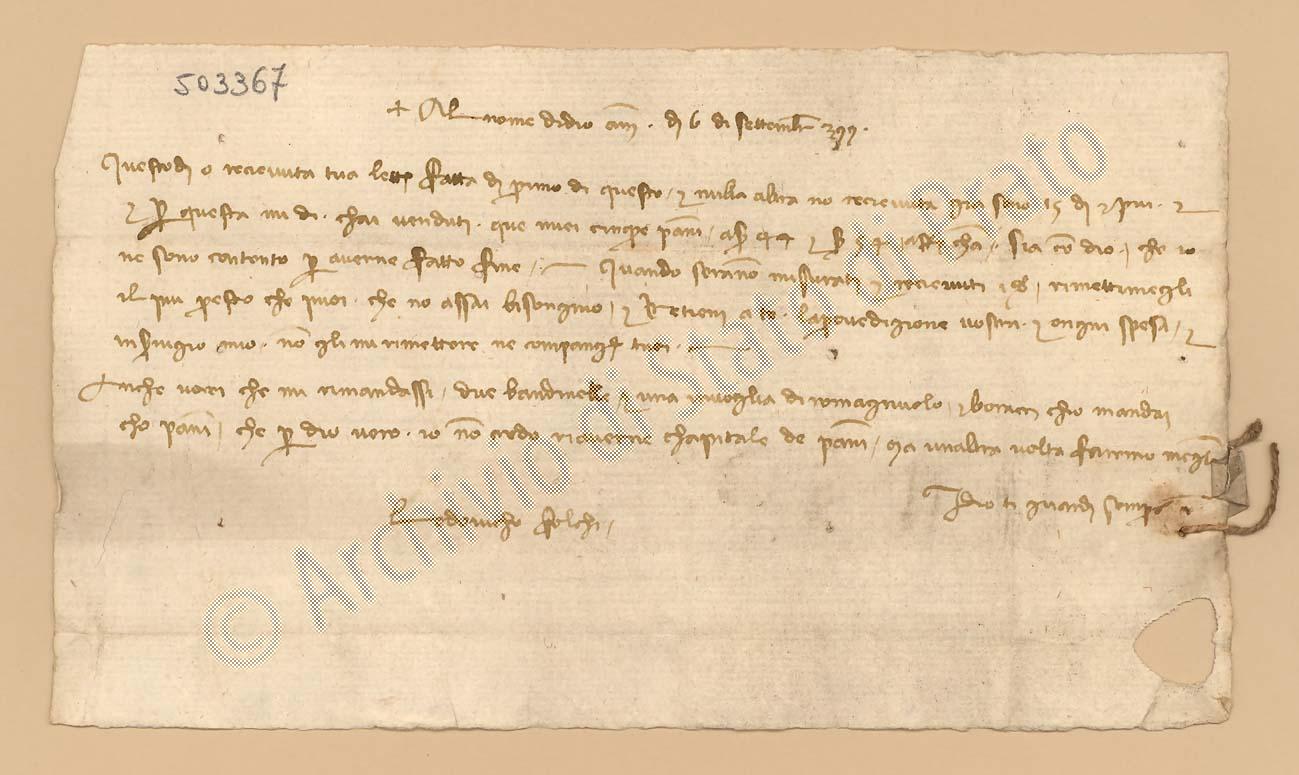 503367
+ Al nome di dio am̅. dì 6 di settembr 399.
Questo dì o ricievuta tua lett fatta dì primo di questo, e nulla altra no ricievuta già sono 15 dì e piu. e
e per questa mi di. ch'ai venduti. que miei cinque panni, a 44 e sia cō dio, che io
ne sono contento p averne fatto fine, Quando seranno missurati e ricievuti i rimettimegli
il piu presto che puoi. che no assai bisongnio, e ritieni a te. la provedigione vostra. e ongni spesa, e
in servigio mio. nō gli mi rimettere ne compangi tuoi.
Anche vorei che mi rimandassi, due bandinelle, e una invoglia di romagnuolo, e buoni ch'io mandai
cho panni, che p dio vero. io nō credo riaverne chapitale de panni, ma un'altra volta faremo megl
Idio ti guardi sempre
Lodovicho
© Archivio di Stato di Prato